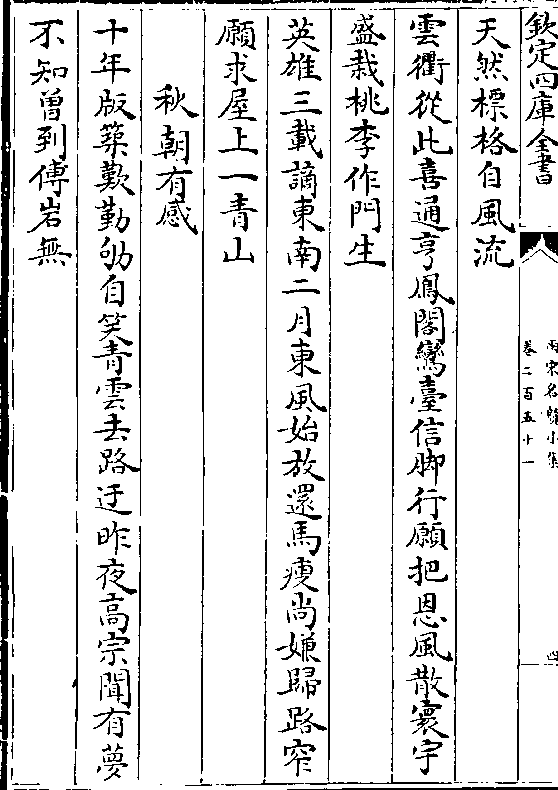 欽定四庫全書
兩宋名賢小集
卷二百五十一
四
天然標格自風流
雲衢從此喜通亨鳳閣鸞臺信脚行願把恩風散寰宇
盛栽桃李作門生
英雄三載謫東南二月東風始放還馬瘦尚嫌歸路窄
願求屋上一青山
秋朝有感
十年版築歎勤劬自笑青雲去路迂昨夜高宗聞有夢
不知曾到傅岩無